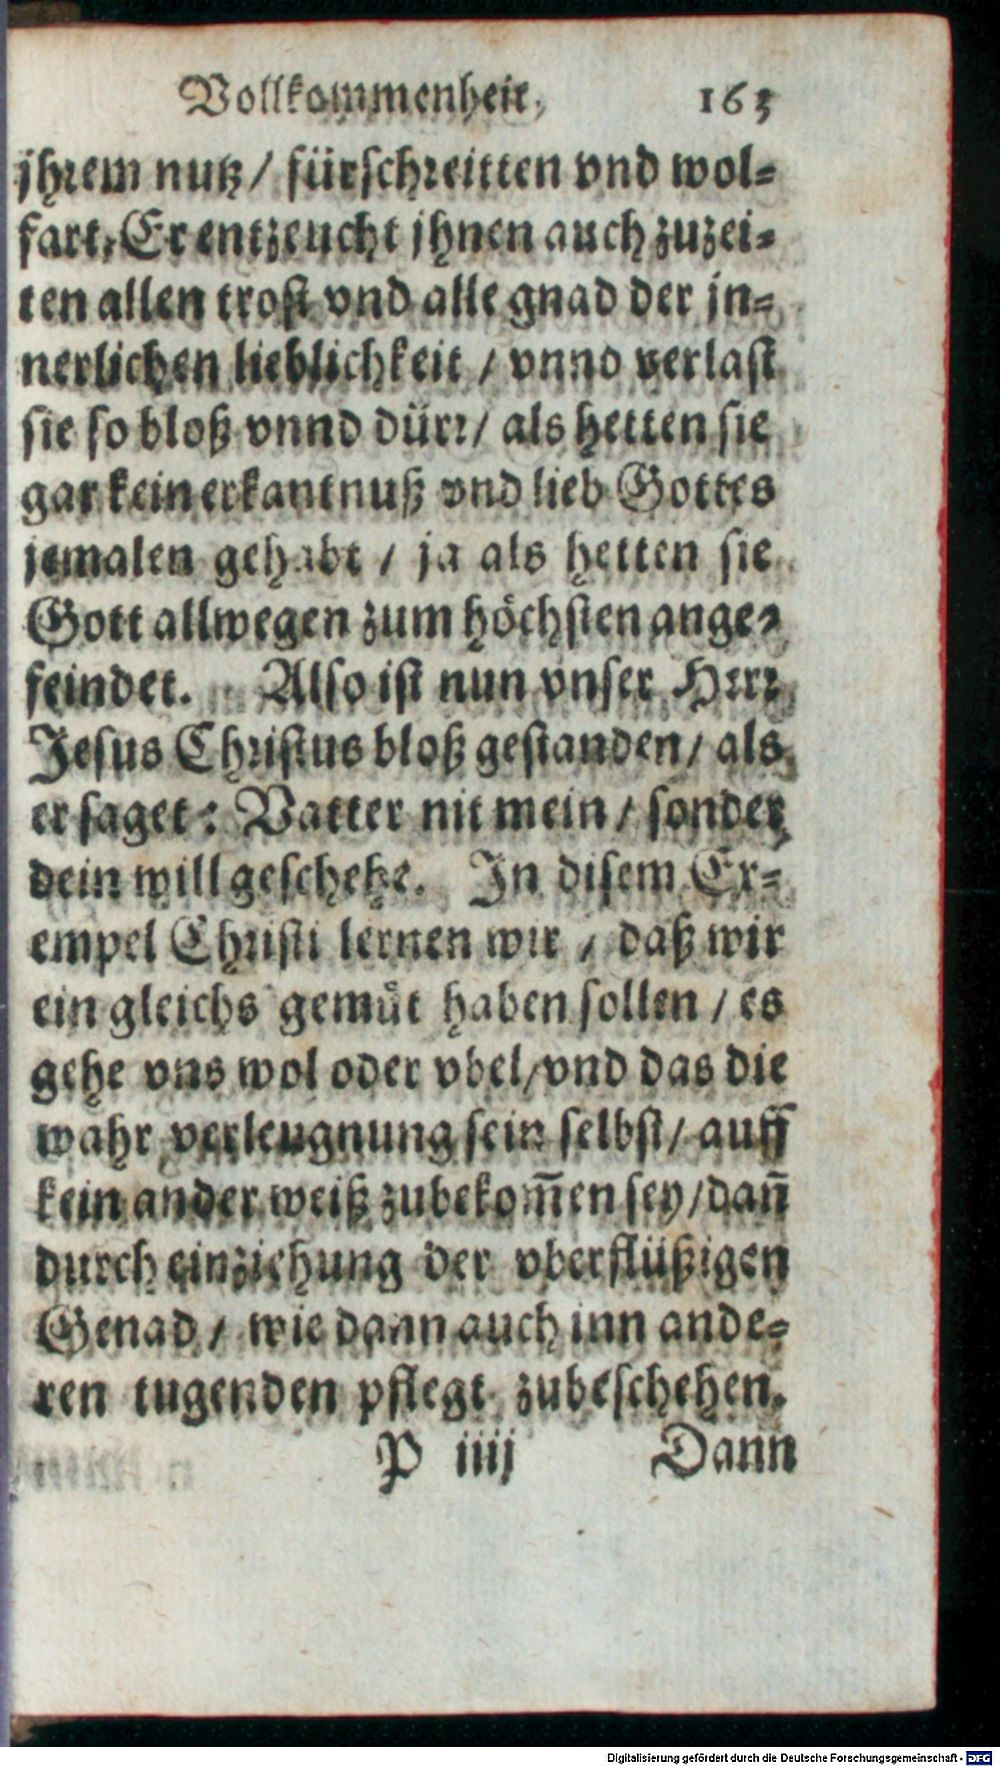 Vollkommenheit. 163
jhrem nutz / fürschreitten vnd wol-
fart, Er entzeucht jhnen auch zuzei-
ten allen trost vnd alle gnad der jn-
nerlichen lieblichkeit / vnnd verlast
sie so bloß vnnd dürr / als hetten sie
gar kein erkantnuß vnd lieb Gottes
jemalen gehabt / ja als hetten sie
Gott allwegen zum höchsten ange-
feindet. Also ist nun vnser Herr
Jesus Christus bloß gestanden / als
er saget: Vatter nit mein / sonder
dein will geschehe. In disem Ex-
empel Christi lernen wir / daß wir
ein gleichs gemüt haben sollen / es
gehe vns wol oder vbel / vnd das die
wahr verleugnung sein selbst / auff
kein ander weiß zubekom̃en sey / dañ
durch einziehung der vberflüßigen
Genad / wie dann auch inn ande-
ren tugenden pflegt zubeschehen.
P iiij Dann
Digitalisierung gefördert durch die Deutsche Forschungsgemeinschaft - DFG